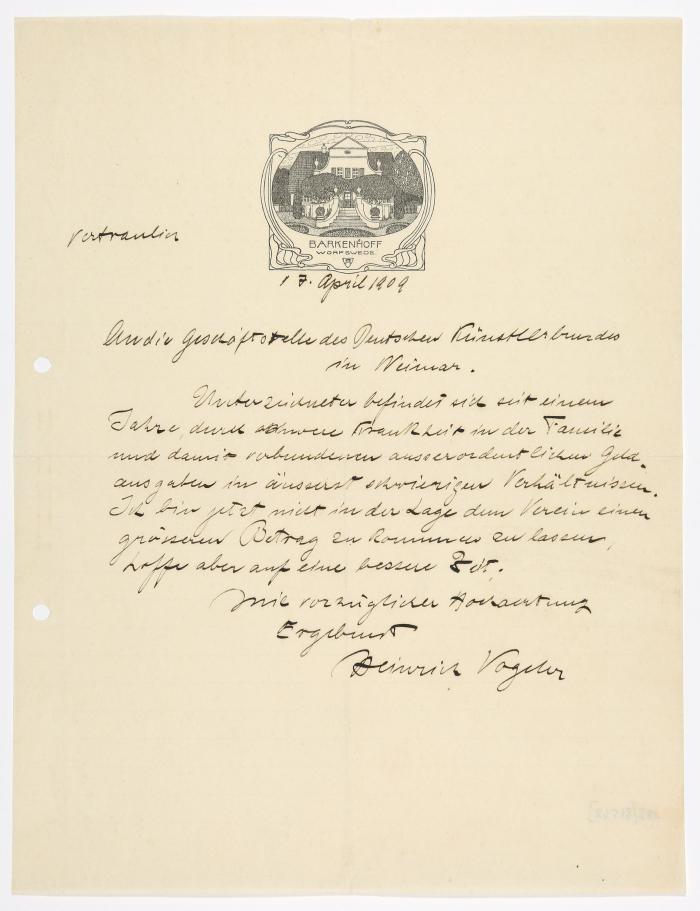 vertraulich
BARKENHOFF
WORPSWEDE.
17. April 1909
An die Geschäftstelle des Deutschen Künstlerbundes
in Weimar.
Unterzeichneter befindet sich seit einem
Jahre, durch schwere Krankheit in der Familie
und damit verbundenen ausserordentlichen Geld-
ausgaben in äusserst schwierigen Verhältnissen.
Ich bin jetzt nicht in der Lage dem Verein einen
grösseren Betrag zu kommen zu lassen,
hoffe aber auf eine bessere Zeit.
Mit vorzüglicher Hochachtung
Ergebenst
Heinrich Vogeler